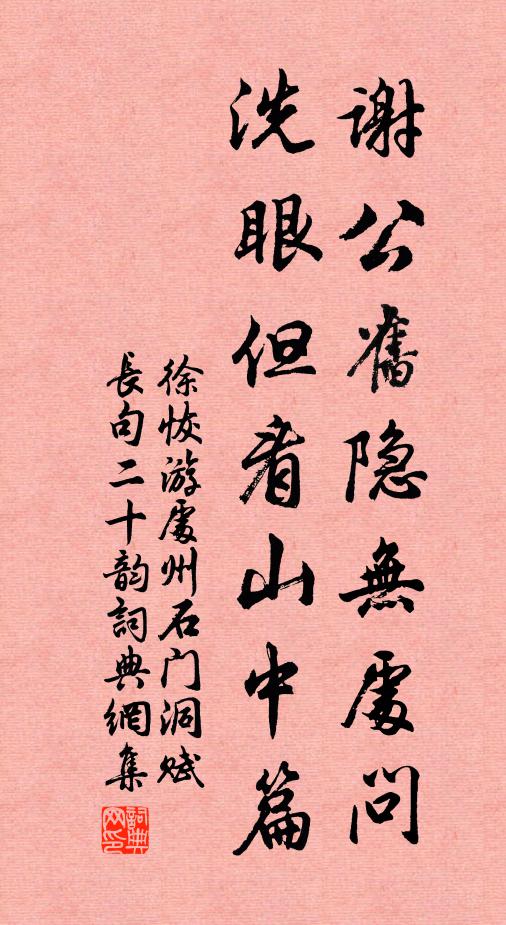 谢公舊隐無處问
洗眼但看山中篇
徐恢游處州石门洞赋
長句二十韵詞典網集
詞典网印